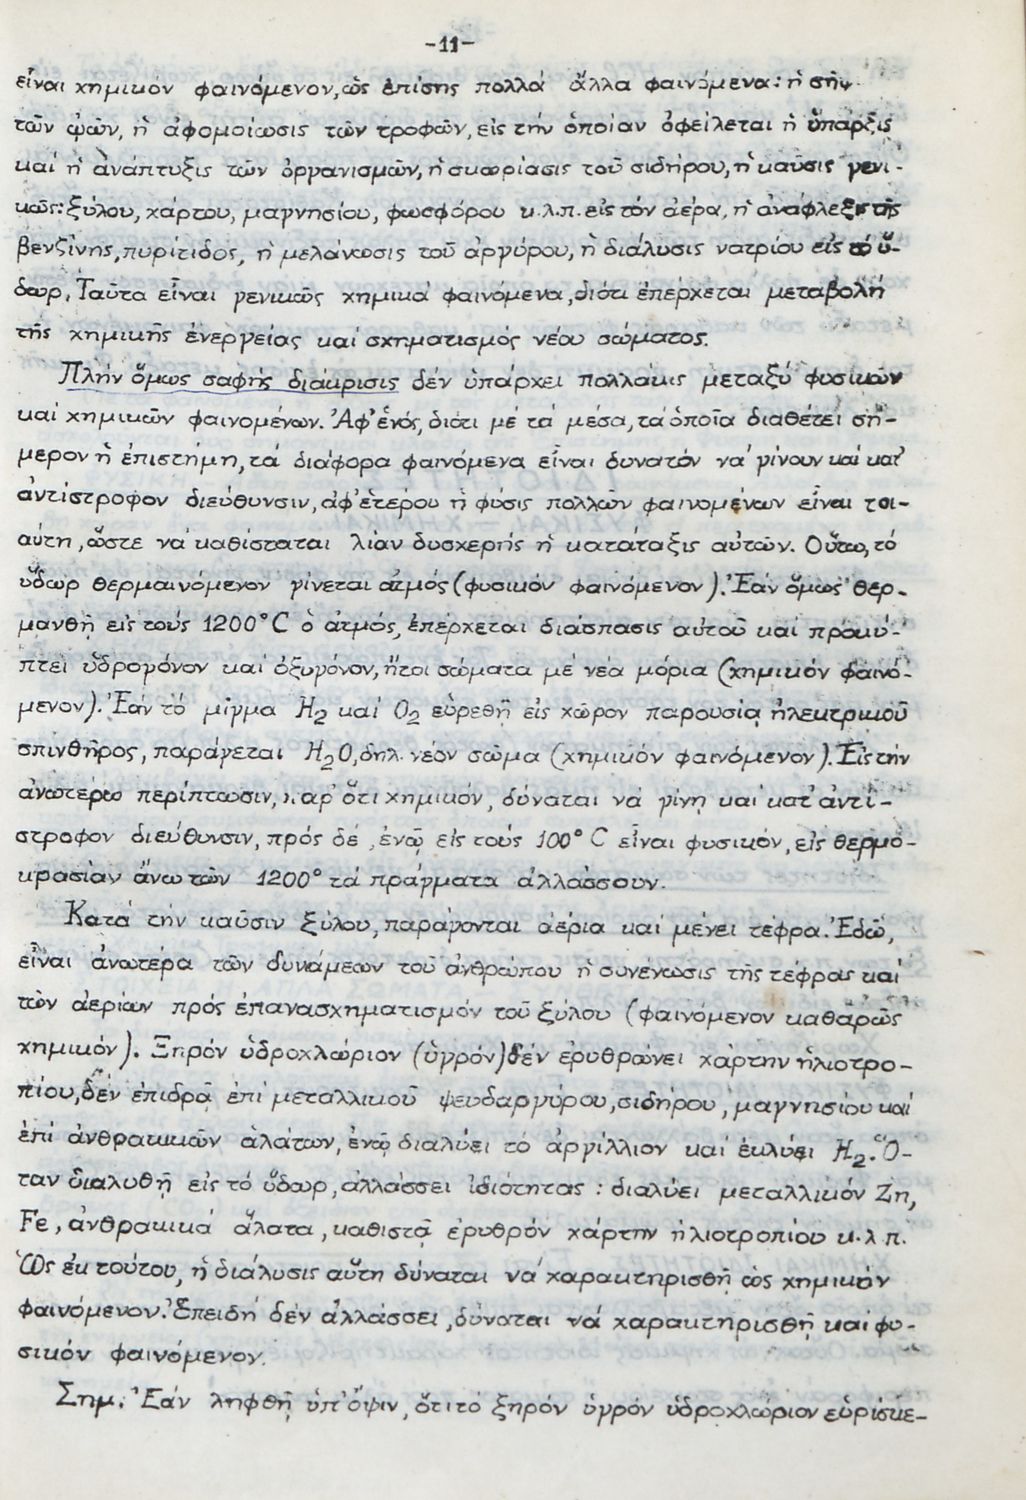 -11-
εἶναι χημικόν φαινόμενον, ὡς ἐπίσης πολλά ἄλλα φαινόμενα: ἡ σῆψ
τῶν ᾠῶν, ἡ ἀφομοίωσις τῶν τροφῶν, εἰς τήν ὁποίαν ὀφείλεται ἡ ὕπαρξις
καί ἡ ἀνάπτυξις τῶν ὀργανισμῶν, ἡ σκωρίασις τοῦ σιδήρου, ἡ καῦσις γενι-
κῶς: ξύλου, χάρτου, μαγνησίου, φωσφόρου κ.λ.π. εἰς τόν ἀέρα, ἡ ἀνάφλεξις τῆς
βενζίνης, πυρίτιδος, ἡ μελάνωσις τοῦ ἀργύρου, ἡ διάλυσις νατρίου εἰς τό ὕ-
δωρ. Ταῦτα εἶναι γενικῶς χημικά φαινόμενα, διότι ἐπέρχεται μεταβολή
τῆς χημικῆς ἐνεργείας καί σχηματισμός νέου σώματος.
Πλήν ὅμως σαφής διάκρισις δέν ὑπάρχει πολλάκις μεταξύ φυσικῶν
καί χημικῶν φαινομένων. Ἀφ' ἑνός, διότι μέ τά μέσα, τά ὁποῖα διαθέτει σή-
μερον ἡ ἐπιστήμη, τά διάφορα φαινόμενα εἶναι δυνατόν νά γίνουν καί κατ'
ἀντίστροφον διεύθυνσιν, ἀφ' ἑτέρου ἡ φύσις πολλῶν φαινομένων εἶναι τοι-
αύτη, ὥστε νά καθίσταται λίαν δυσχερής ἡ κατάταξις αὐτῶν. Οὕτω, τό
ὕδωρ θερμαινόμενον γίνεται ἀτμός (φυσικόν φαινόμενον). Ἐάν ὅμως θερ-
μανθῇ εἰς τούς 1200°C ὁ ἀτμός, ἐπέρχεται διάσπασις αὐτοῦ καί προκύ-
πτει ὑδρογόνον καί ὀξυγόνον, ἤτοι σώματα μέ νέα μόρια (χημικόν φαινό-
μενον). Ἐάν τό μῖγμα H₂ καί O₂ εὑρεθῇ εἰς χῶρον παρουσίᾳ ἠλεκτρικοῦ
σπινθῆρος, παράγεται H₂O, δηλ. νέον σῶμα (χημικόν φαινόμενον). Εἰς τήν
ἀνωτέρω περίπτωσιν, παρ' ὅτι χημικόν, δύναται νά γίνῃ καί κατ' ἀντί-
στροφον διεύθυνσιν, πρός δέ, ἐνῷ εἰς τούς 100° C εἶναι φυσικόν, εἰς θερμο-
κρασίαν ἄνω τῶν 1200° τά πράγματα ἀλλάσσουν.
Κατά τήν καῦσιν ξύλου, παράγονται ἀέρια καί μένει τέφρα. Ἐδῶ,
εἶναι ἀνωτέρα τῶν δυνάμεων τοῦ ἀνθρώπου ἡ συνένωσις τῆς τέφρας καί
τῶν ἀερίων πρός ἐπανασχηματισμόν τοῦ ξύλου (φαινόμενον καθαρῶς
χημικόν). Ξηρόν ὑδροχλώριον (ὑγρόν) δέν ἐρυθραίνει χάρτην ἡλιοτρο-
πίου, δέν ἐπιδρᾷ ἐπί μεταλλικοῦ ψευδαργύρου, σιδήρου, μαγνησίου καί
ἐπί ἀνθρακικῶν ἀλάτων, ἐνῷ διαλύει τό ἀργίλλιον καί ἐκλύει H₂. Ὅ-
ταν διαλυθῇ εἰς τό ὕδωρ, ἀλλάσσει ἰδιότητας: διαλύει μεταλλικόν Zn,
Fe, ἀνθρακικά ἅλατα, καθιστᾷ ἐρυθρόν χάρτην ἡλιοτροπίου κ.λ.π.
Ὡς ἐκ τούτου, ἡ διάλυσις αὕτη δύναται νά χαρακτηρισθῇ ὡς χημικόν
φαινόμενον. Ἐπειδή δέν ἀλλάσσει, δύναται νά χαρακτηρισθῇ καί φυ-
σικόν φαινόμενον.
Σημ. Ἐάν ληφθῇ ὑπ' ὄψιν, ὅτι τό ξηρόν ὑγρόν ὑδροχλώριον εὑρίσκε-